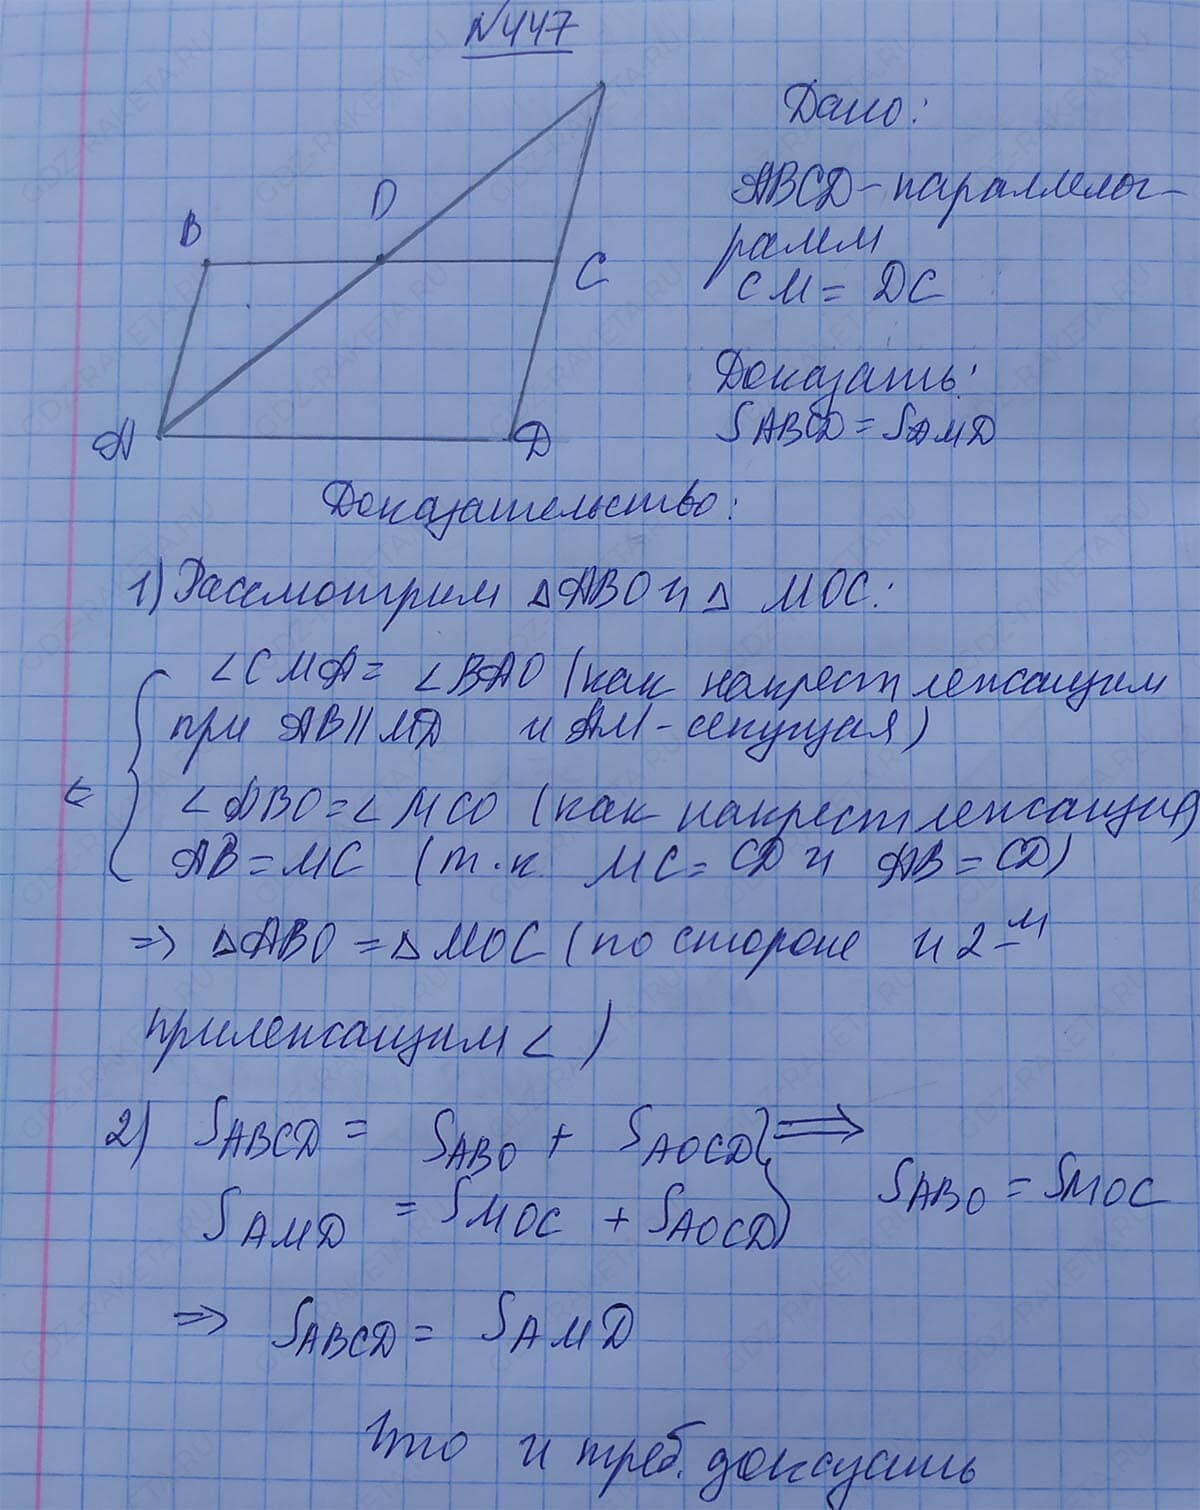 N447
Дано:
ABCD - параллелог-
рамм
CM = DC
Доказать:
SABCD = SAMD
B
D
C
A
D
Доказательство:
1) Рассмотрим △ABO и △ MOC:
∠CMA = ∠BAO (как накрест лежащим
при AB||MD и AM - секущая)
∠ABO = ∠MCO (как накрест лежащия)
AB = MC (т.к. MC = CD и AB = CD)
=> △ABO = △MOC (по стороне и 2-м
прилежащим ∠ )
2) SABCD = SABO + SAOCD
SAMD = SMOC + SAOCD
=> SABO = SMOC
=> SABCD = SAMD
Что и треб. доказать